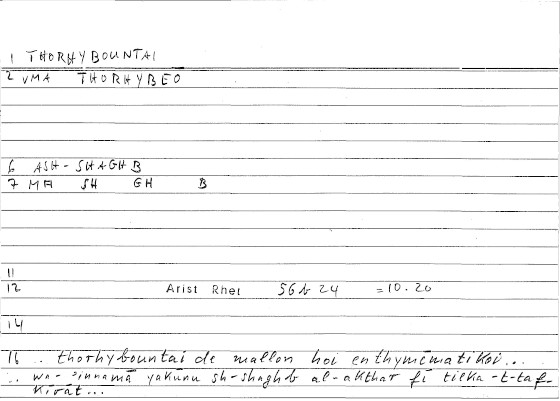 1 THORHYBOUNTAI
2 VMA THORHYBEO
6 ASH-SHAGHB
7 MA SH GH B
11
12 Arist Rhet 56b 24 =10.20
14
16 .. thorhybountai de mallon hoi enthymēmatikoi...
.. wa-ʾinnamā yakūnu sh-shaghb al-akthar fī tilka-t-taf-
kīrāt...